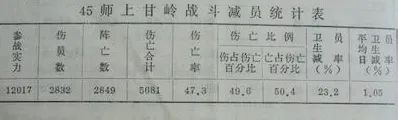 45师上甘岭战斗减员统计表
参战实力 伤员数 阵亡数 伤亡合计 伤亡率 伤亡比例 卫生减员率(%) 平均日卫生减员率(%)
伤占伤亡百分比 亡占伤亡百分比
12017 2832 2849 5681 47.3 49.6 50.4 23.2 1.05